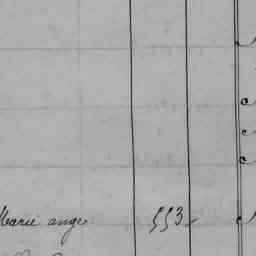 Marie ange 553